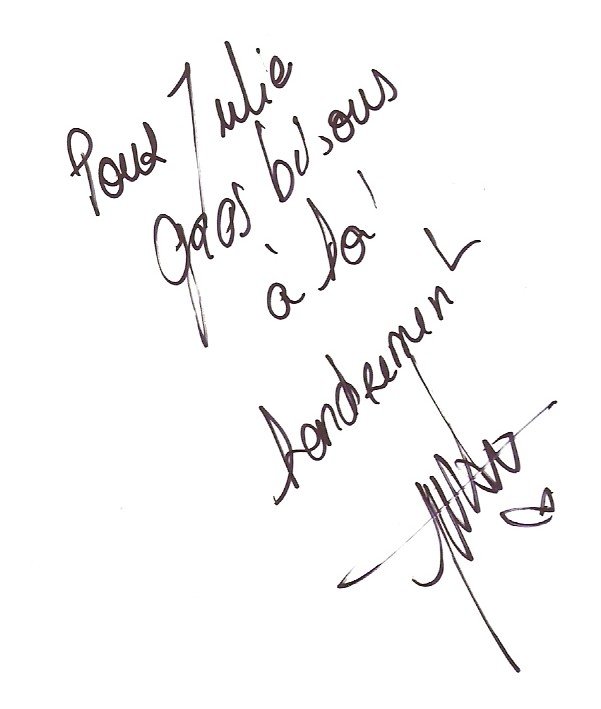 Pour Julie
gros bisous
à toi
tendrement